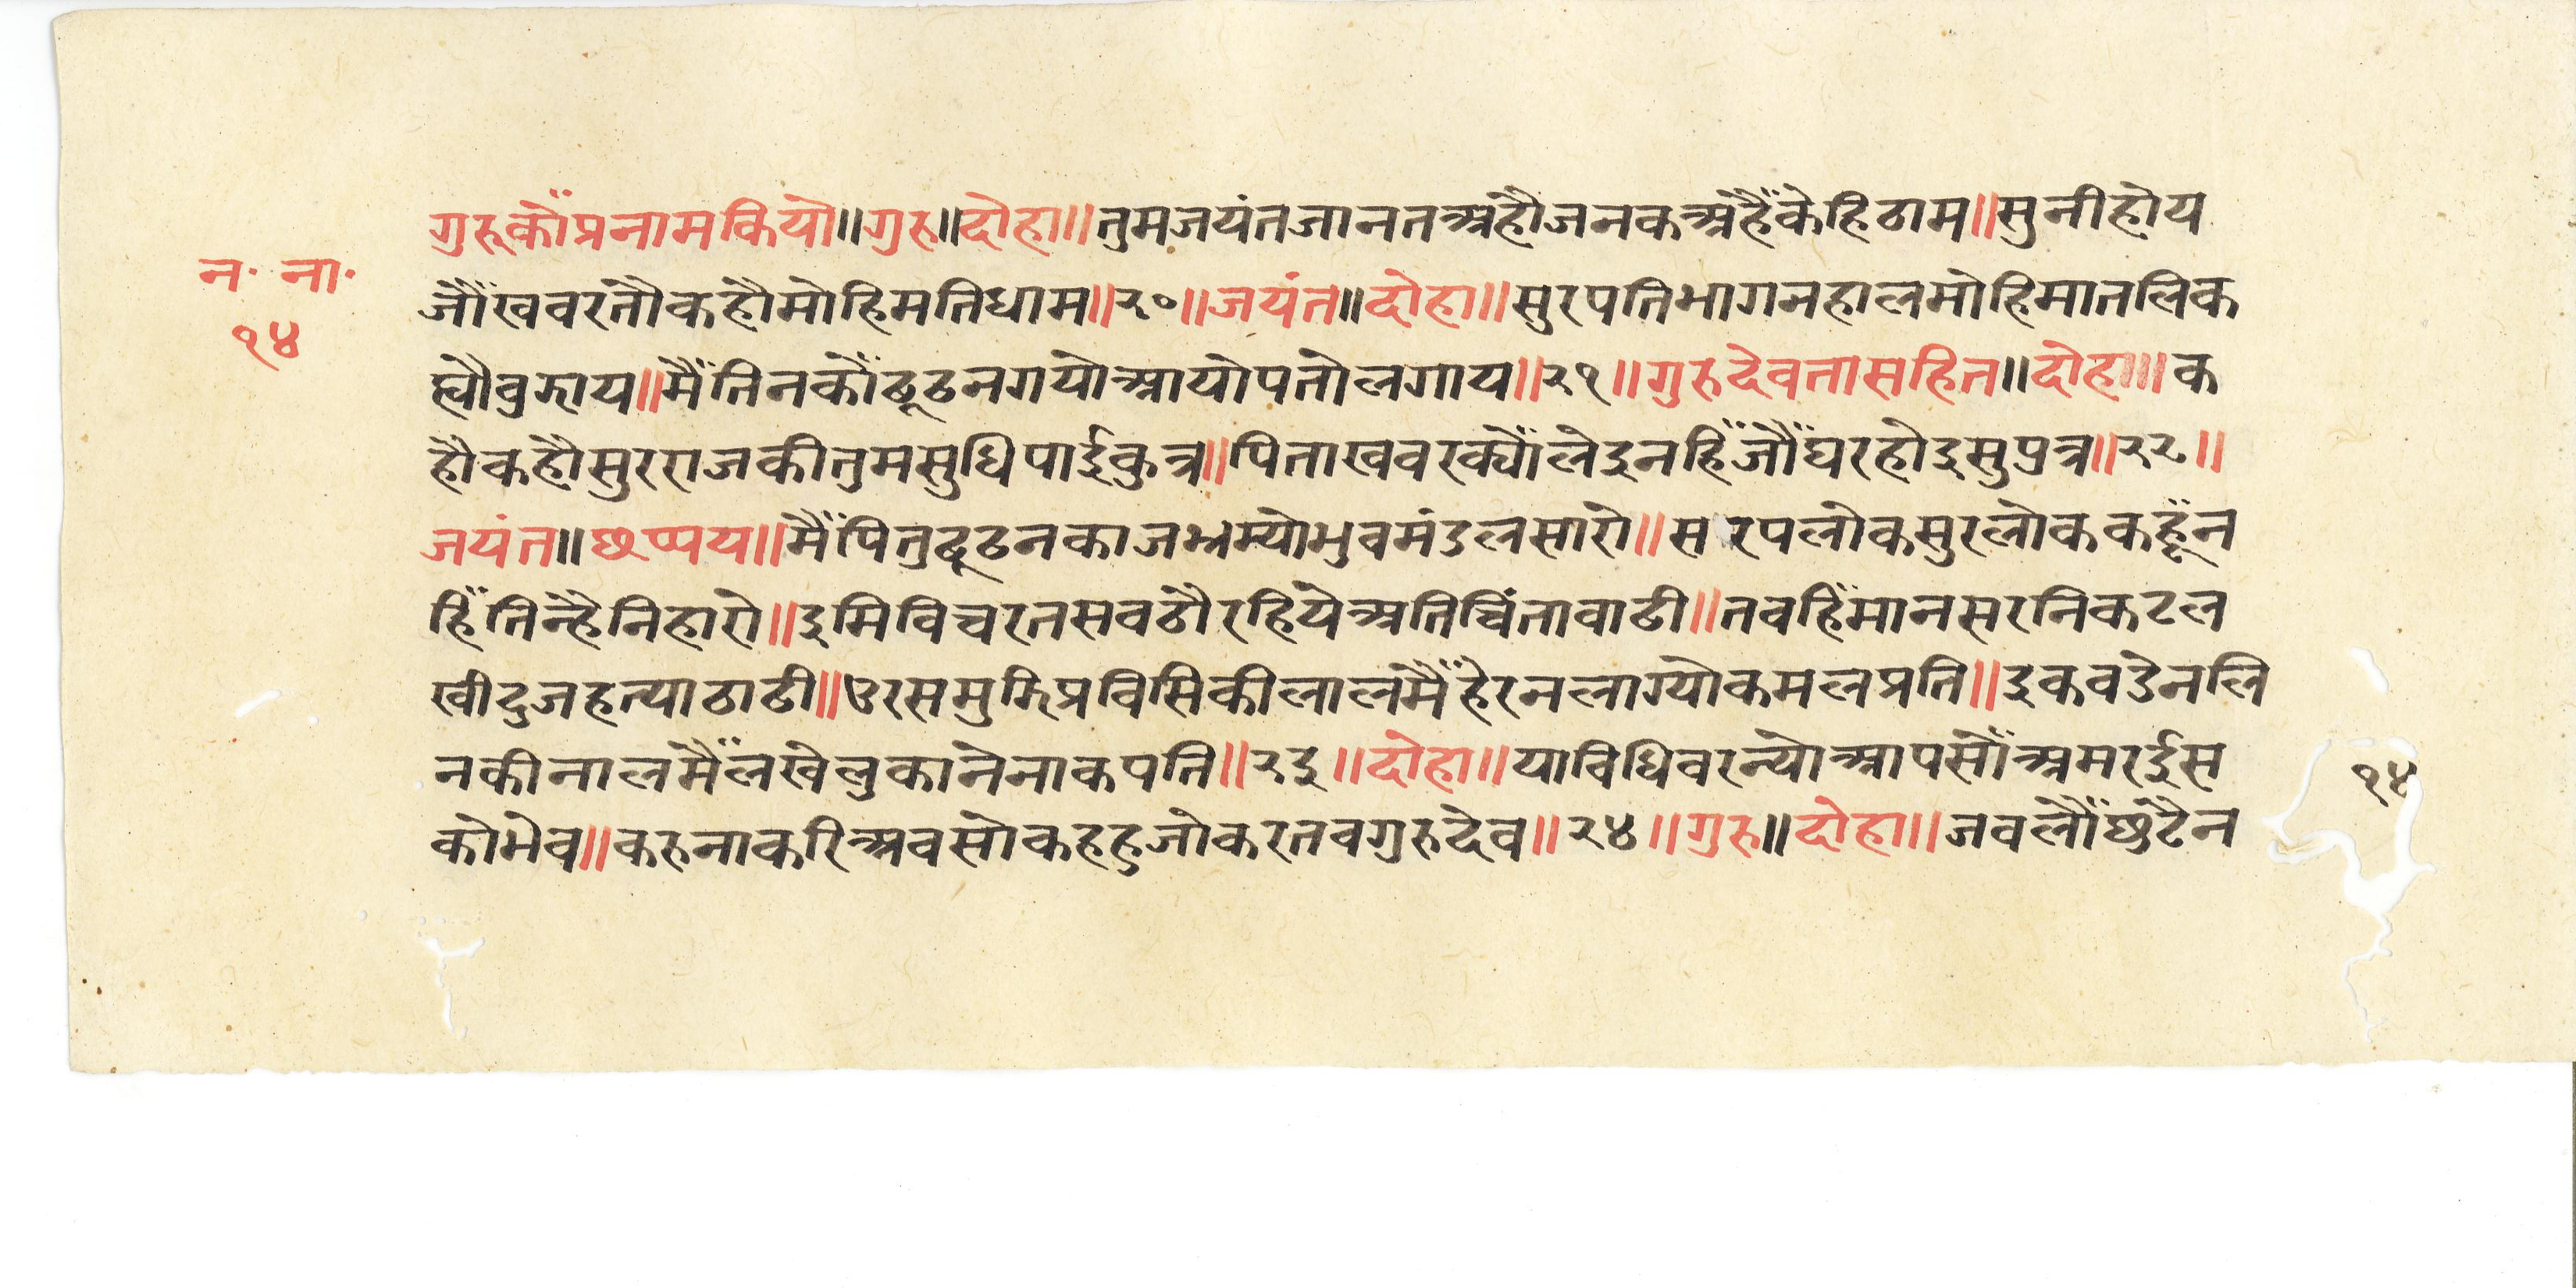 गुरूकौँप्रनामकियो॥गुरु॥दोहा॥तुमजयंतजानतअहौजनकअहैँकेहिठाम॥सुनीहोय
न· ना·
जौँखवरतौकहौमोहिमतिधाम॥२०॥जयंत॥दोहा॥सुरपतिभागनहालमोहिमातलिक
१४
ह्यौवुझाय॥मैँतिनकौँढूढनगयोआयोपतोलगाय॥२१॥गुरुदेवतासहित॥दोहा॥क
हौकहौसुरराजकीतुमसुधिपाईकुत्र॥पिताखवरक्यौँलेइनहिँजौँघरहोइसुपुत्र॥२२॥
जयंत॥छप्पय॥मैँपितुढूढनकाजभ्रम्योभुवमंडलसारो॥सरपलोकसुरलोककहूँन
हिँतिन्हैनिहारो॥इमिविचरतसवठौरहियेअतिचिंतावाढी॥तवहिँमानसरनिकटल
खीदुजहत्याठाढी॥उरसमुझिप्रविसिकीलालमैँहेरनलाग्योकमलप्रति॥इकवडेनलि
नकीनालमैँलखेलुकानेनाकपति॥२३॥दोहा॥याविधिवरन्योआपसौँअमरईस
१४
कोभेव॥करुनाकरिअवसोकहहुजोकरतवगुरुदेव॥२४॥गुरु॥दोहा॥जवलौँछुटैन